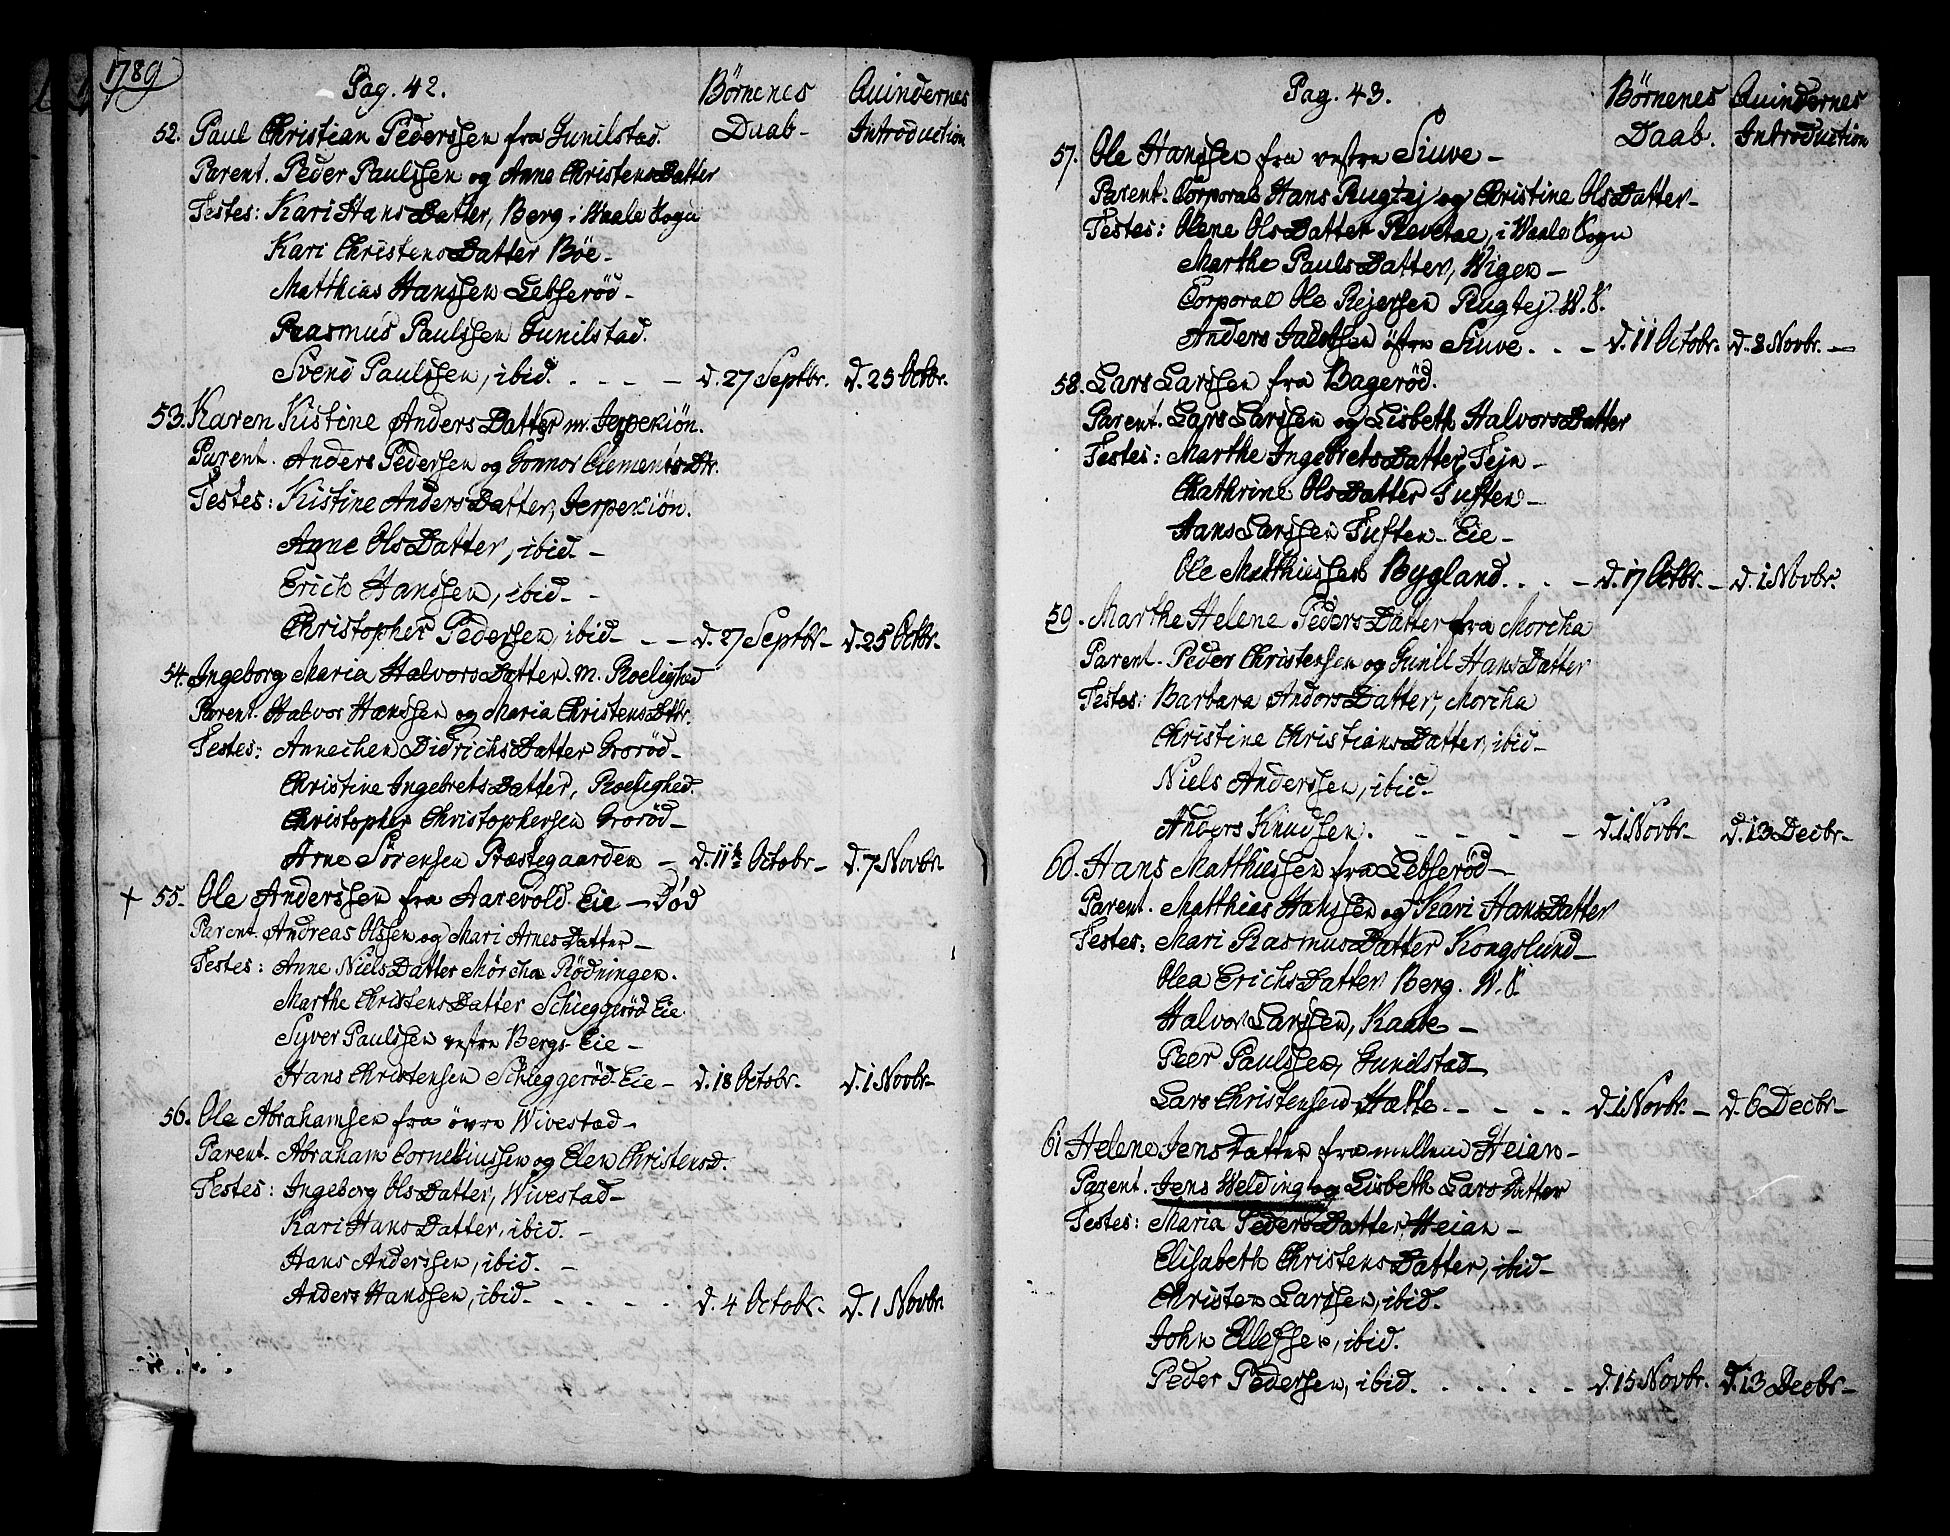 1789
Pag. 42.
Börnenes Daab-
Quindernes Introduction
52. Paul Christian Pederssen fra Gunilstad.
Parent. Peder Paulssen og Anne ChristensDatter
Testes: Kari HansDatter, Berg i Waale Sogn
Kari ChristensDatter Böe-
Matthias Hanssen Lebseröd-
Raasmus Paulssen Gunilstad.
Svend Paulssen, ibid. . - - - d. 27 Septbr. d. 25 Octbr.
53. Karen Kistine AndersDatter m. Jerpekiön.
Parent. Anders Pedersen og Gonnor Clements Dtr.
Testes: Kistine AndersDatter, Jerpekiön.
Anne OlsDatter, ibid. -
Erich Hanssen, ibid. -
Christopher Pedersen, ibid - - - d. 27 Septbr- d. 25 Octbr.
54. Ingeborg Maria HalvorsDatter. m. Roelighed
Parent. Halvor Hanssen og Maria ChristensDttr.
Testes: Annechen DidrichsDatter Groröd-
Christine IngebretsDatter, Roelighed.
Christopher Christophersen Groröd-
Arne Sörensen Præstegaarden - d. 11 Octobr- d. 7 Novbr.
+ 55. Ole Anderssen fra Aarevold-Eie - Död
Parent. Andreas Olssen og Mari ArnesDatter-
Testes: Anne NielsDatter Mörcha Rödningen.
Marthe ChristensDatter Schieggeröd Eie
Syver Paulssen vestre Bergs-Eie-
Hans Christensen Schieggeröd-Eie- d. 18 Octobr- d. 1 Novbr-
56. Ole Abrahamsen fra övre Wivestad-
Parent. Abraham Corneliussen og Elen Christensd.
Testes: Ingeborg OlsDatter, Wivestad-
Kari HansDatter, ibid. -
Hans Anderssen, ibid. -
Anders Hanssen, ibid. - . . . . d. 4 Octobr- d. 1 Novbr
Pag. 43.
Börnenes Daab.
Quindernes Introduction
57. Ole Hanssen fra vestre Siuve-
Parent. Corporal Hans Rugtej og Christine OlsDatter-
Testes: Olene OlsDatter Revetae, i Waale Sogn
Marthe PaulsDatter, Wigen-
Corporal Ole Rejersen Rugtej. W. S.
Anders Jacobsen östre Siuve. . . - d. 11 Octobr. d. 8 Novbr. -
58. Lars Larssen fra Bageröd.
Parent. Lars Larssen og Lisbeth HalvorsDatter
Testes: Marthe IngebretsDatter, Tejn-
Chathrine OlsDatter Tuften-
Hans Larssen Tuften-Eie-
Ole Matthiessen Bygland. . . - d. 17 Octbr. - d. 1 Novbr.
59. Marthe Helene PedersDatter fra Morcha
Parent. Peder Christensen og Gunill HansDatter
Testes: Barbara AndorsDatter, Morcha
Christine ChristiansDatter, ibid-
Niels Anderssen, ibid-
Anders Knudsen. - - - - - d. 1 Novbr- d. 13 Decbr-
60. Hans Matthiessen fra Lebseröd-
Parent. Matthias Hanssen og Kari HansDatter
Testes: Mari RasmusDatter Kongslund-
Olea ErichsDatter Berg. W. S.
Halvor Larssen, Kaabe-
Peer Paulssen, Gunilstad-
Lars Christensen Hætte- - - - - d. 1 Novbr. - d. 6 Decbr-
61 Helene JensDatter fra mellem Heian-
Parent. Jens Welding og Lisbeth LarsDatter
Testes: Maria PedersDatter Heian-
Elisabeth ChristensDatter, ibid-
Christen Larssen, ibid.
John Ellefsen, ibid.
Peder Pedersen, ibid. . . . . . d. 15 Novbr. d. 13 Decbr-